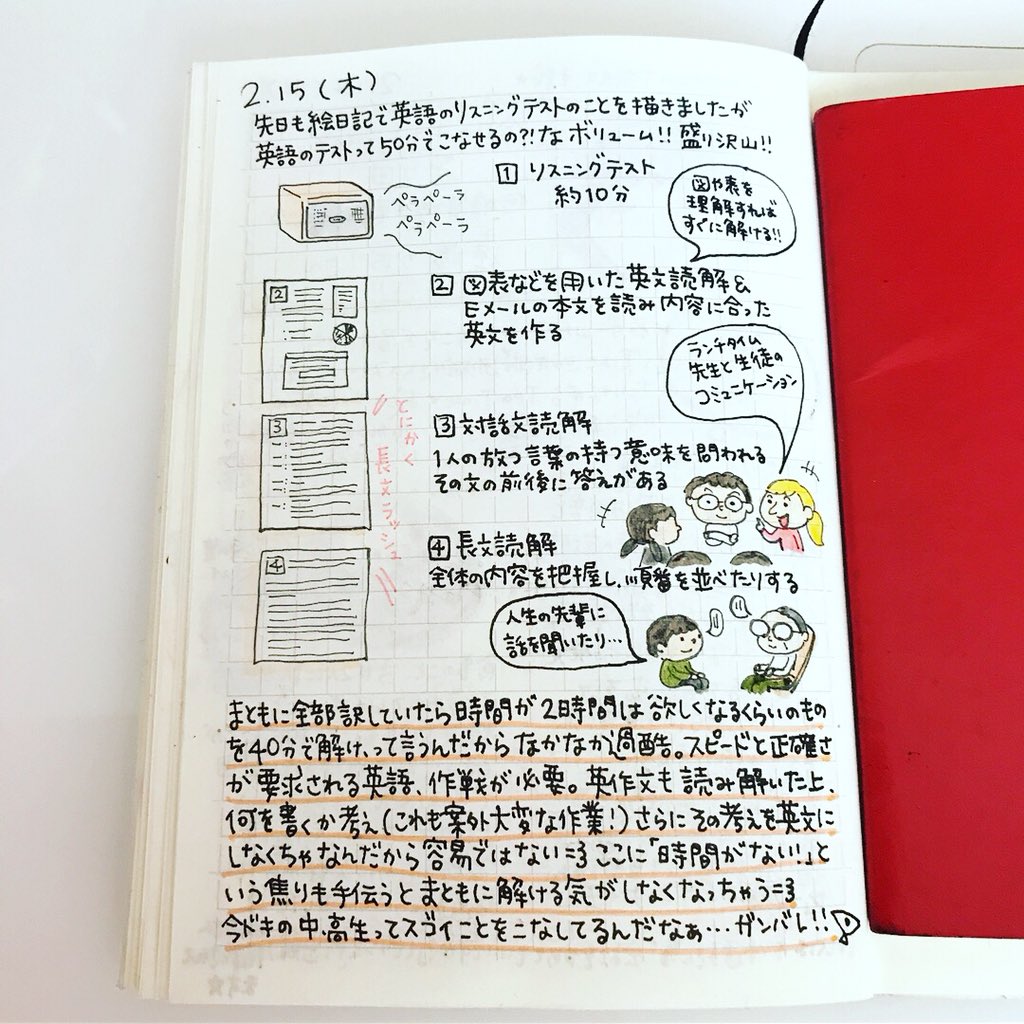 2.15(木)
先日も絵日記で英語のリスニングテストのことを描きましたが
英語のテストって50分でこなせるの?!なボリューム!!盛り沢山!!
1 リスニングテスト
約10分
ペラペーラ
ペラペーラ
図や表を
理解すれば
すぐに解ける!!
2
2 図表などを用いた英文読解&
Eメールの本文を読み内容に合った
英文を作る
ランチタイム
先生と生徒の
コミュニケーション
3
とにかく
長文ラッシュ
3 対話文読解
1人の放つ言葉の持つ意味を問われる
その文の前後に答えがある
4
4 長文読解
全体の内容を把握し、順番を並べたりする
人生の先輩に
話を聞いたり…
まともに全部訳していたら時間が2時間は欲しくなるくらいのもの
を40分で解け、って言うんだからなかなか過酷。スピードと正確さ
が要求される英語、作戦が必要。英作文も読み解いた上、
何を書くか考え(これも案外大変な作業!)さらにその考えを英文に
しなくちゃなんだから容易ではない=3 ここに「時間がない!」と
いう焦りも手伝うとまともに解ける気がしなくなっちゃう=3
今ドキの中、高生ってスゴイことをこなしてるんだなぁ…ガンバレ!!